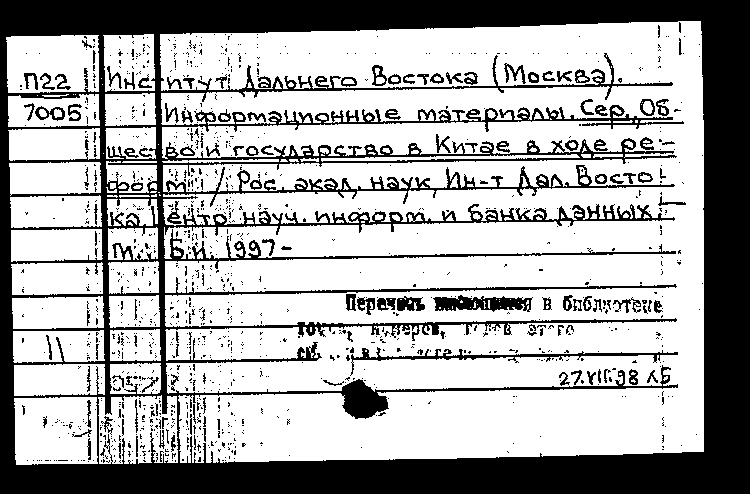 П22 Институт Дальнего Востока (Москва).
7005 Информационные материалы. Сер. „Об-
щество и государство в Китае в ходе ре-
форм" / Рос. акад. наук, Ин-т Дал. Восто-
ка, Центр науч. информ. и банка данных. -
М.: Б.и. 1997-
Перечень в библиотеке
томов, номеров, годов этого
11
27.VIII.98